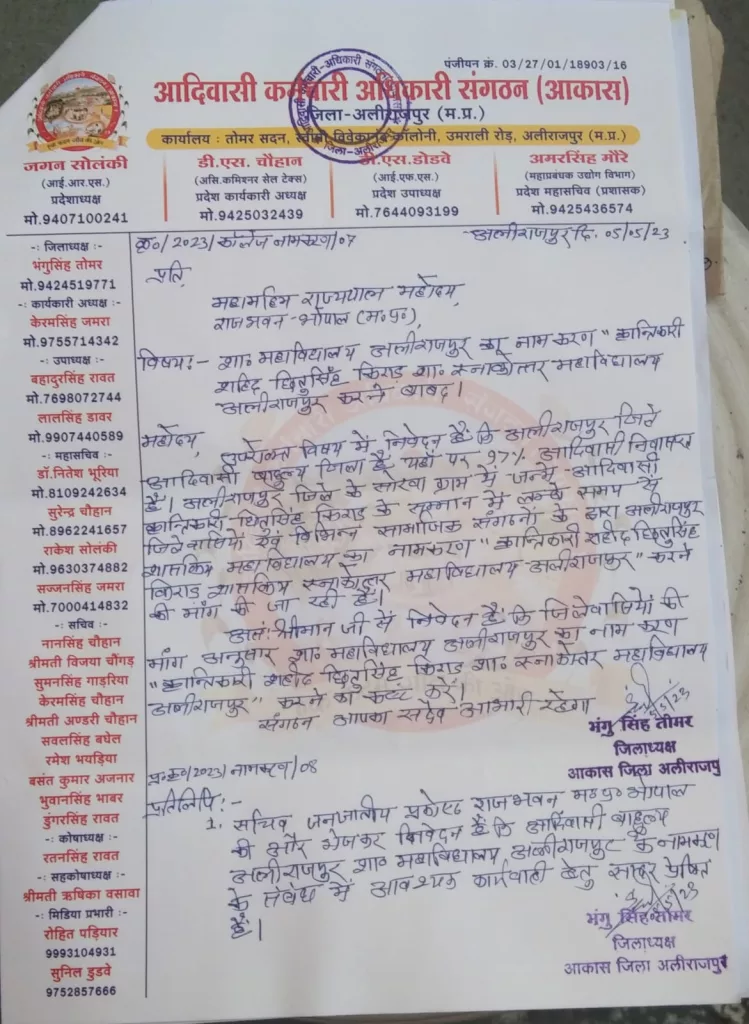 पंजीयन क्रं. 03/27/01/18903/16
आदिवासी कर्मचारी अधिकारी संगठन (आकास)
जिला-अलीराजपुर (म.प्र.)
कार्यालय : तोमर सदन, स्वामी विवेकानंद कॉलोनी, उमराली रोड़, अलीराजपुर (म.प्र.)
जगन सोलंकी
(आई.आर.एस.)
प्रदेशाध्यक्ष
मो.9407100241
डी.एस. चौहान
(असि.कमिश्नर सेल टेक्स)
प्रदेश कार्यकारी अध्यक्ष
मो.9425032439
एम.एस.डोडवे
(आई.एफ.एस.)
प्रदेश उपाध्यक्ष
मो.7644093199
अमरसिंह मौरे
(महाप्रबंधक उद्योग विभाग)
प्रदेश महासचिव (प्रशासक)
मो.9425436574
-: जिलाध्यक्ष :-
भंगुसिंह तोमर
मो.9424519771
-: कार्यकारी अध्यक्ष :-
केरमसिंह जमरा
मो.9755714342
-: उपाध्यक्ष :-
बहादुरसिंह रावत
मो.7698072744
लालसिंह डावर
मो.9907440589
-: महासचिव :-
डॉ.नितेश भूरिया
मो.8109242634
सुरेन्द्र चौहान
मो.8962241657
राकेश सोलंकी
मो.9630374882
सज्जनसिंह जमरा
मो.7000414832
-: सचिव :-
नानसिंह चौहान
श्रीमती विजया चौंगड़
सुमनसिंह गाड़रिया
केरमसिंह चौहान
श्रीमती अण्डरी चौहान
सवलसिंह बघेल
रमेश भयड़िया
बसंत कुमार अजनार
भुवानसिंह भाबर
डुंगरसिंह रावत
-: कोषाध्यक्ष :-
रतनसिंह रावत
-: सहकोषाध्यक्ष :-
श्रीमती ऋषिका वसावा
-: मिडिया प्रभारी :-
रोहित पड़ियार
9993104931
सुनिल डुडवे
9752857666
क्र०/2023/कॉलेज नामकरण/07 अलीराजपुर दि. 05/05/23
प्रति,
महामहिम राज्यपाल महोदय,
राजभवन-भोपाल (म०प्र०),
विषय:- शा० महाविद्यालय अलीराजपुर का नाम करण "क्रान्तिकारी
शहिद छितुसिंह किराड़ शा० स्नाकोत्तर महाविद्यालय
अलीराजपुर करने बाबद।
महोदय,
उपरोक्त विषय में निवेदन है कि अलीराजपुर जिले
आदिवासी बाहुल्य जिला है यहाँ पर 97% आदिवासी निवासरत
है। अलीराजपुर जिले के सोरवा ग्राम में जन्मे आदिवासी
क्रान्तिकारी छितुसिंह किराड़ के सम्मान में लम्बे समय से
जिलेवासियों एवं विभिन्न सामाजिक संगठनों के द्वारा अलीराजपुर
शासकिय महाविद्यालय का नामकरण "क्रान्तिकारी शहीद छितुसिंह
किराड़ शासकिय स्नाकोत्तर महाविद्यालय अलीराजपुर" करने
की मांग की जा रही है।
अतः श्रीमान जी से निवेदन है कि जिलेवासियों की
मांग अनुसार शा० महाविद्यालय अलीराजपुर का नाम करण
"क्रान्तिकारी शहीद छितुसिंह किराड़ शा० स्नाकोत्तर महाविद्यालय
अलीराजपुर" करने का कष्ट करें।
संगठन आपका सदैव आभारी रहेगा
भंगु सिंह तोमर
जिलाध्यक्ष
आकास जिला अलीराजपु
पृ.क्र०/2023/नामकरण/08
प्रतिलिपि:-
1. सचिव जनजातीय प्रकोष्ठ राजभवन म०प्र० भोपाल
की और भेजकर निवेदन है कि आदिवासी बाहुल्य
अलीराजपुर शा० महाविद्यालय अलीराजपुर के नामकरण
के संबंध में आवश्यक कार्यवाही हेतु सादर प्रेषित
है।
भंगु सिंह तोमर
जिलाध्यक्ष
आकास जिला अलीराजपुर